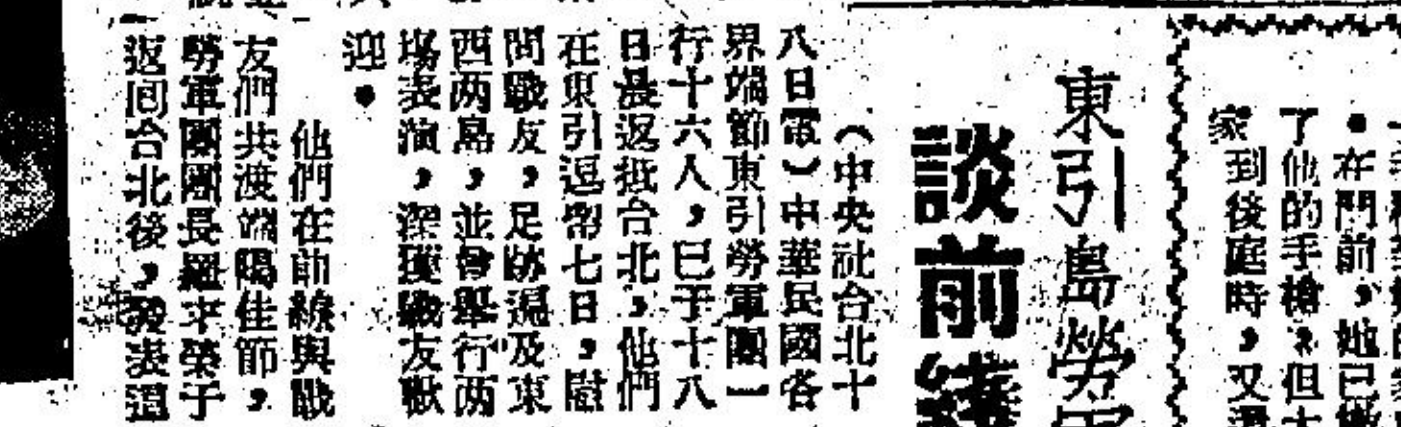 了他的手槍,但
家到後庭時,又
東引島勞軍
談前綫
(中央社台北十
八日電)中華民國各
界端節東引勞軍團一
行十六人,已于十八
日晨返抵台北,他們
在東引逗留七日,慰
問戰友,足跡遍及東
西两島,並曾舉行两
場表演,深獲戰友歡
迎。
他們在前線與戰
友們共渡端陽佳節,
勞軍團團長羅才榮于
返回台北後,發表這